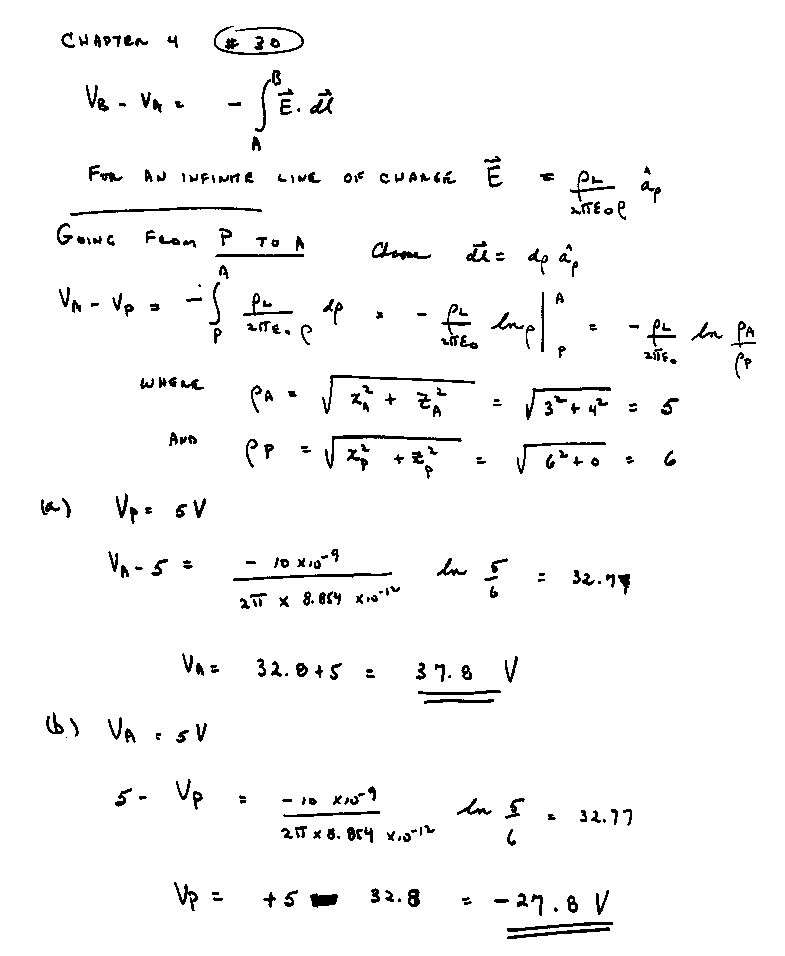 CHAPTER 4 # 30
V_B - V_A = - ∫_A^B E⃗ . dl⃗
FOR AN INFINITE LINE OF CHARGE E⃗ = ρ_L / 2πε₀ρ â_ρ
GOING FROM P TO A Choose dl⃗ = dρ â_ρ
V_A - V_P = - ∫_P^A ρ_L / 2πε₀ρ dρ = - ρ_L / 2πε₀ ln ρ |_P^A = - ρ_L / 2πε₀ ln ρ_A / ρ_P
WHERE ρ_A = √(x_A² + z_A²) = √(3² + 4²) = 5
AND ρ_P = √(x_P² + z_P²) = √(6² + 0) = 6
(a) V_P = 5 V
V_A - 5 = - 10 x10⁻⁹ / 2π x 8.854 x10⁻¹² ln 5/6 = 32.77
V_A = 32.8 + 5 = 37.8 V
(b) V_A = 5 V
5 - V_P = - 10 x10⁻⁹ / 2π x 8.854 x10⁻¹² ln 5/6 = 32.77
V_P = +5 - 32.8 = - 27.8 V